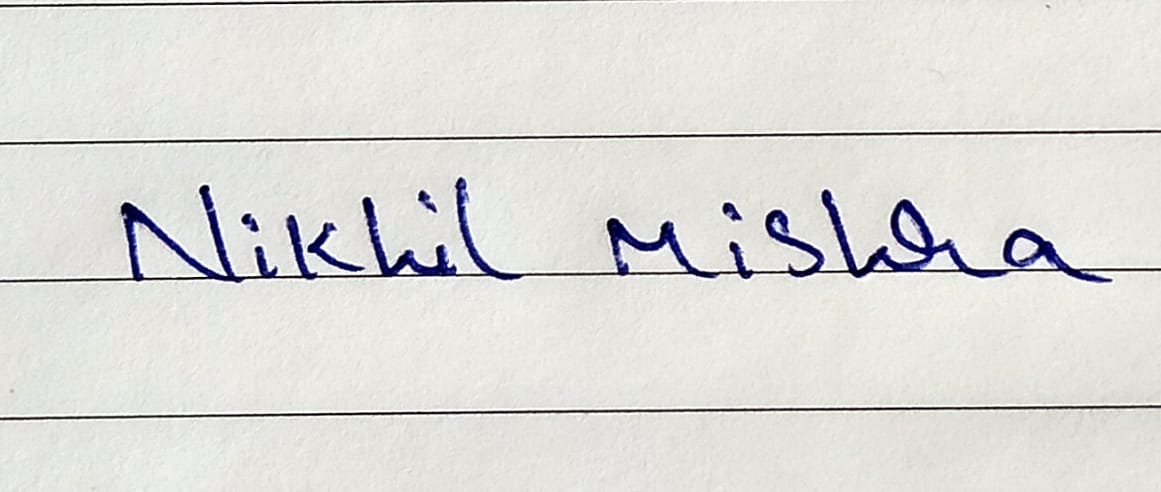 Nikhil Mishra